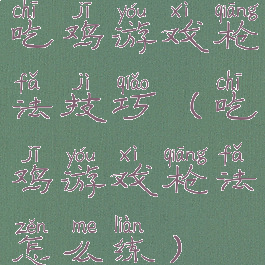 chī jī yóu xì qiāng
吃鸡游戏枪
fǎ jì qiǎo chī
法技巧（吃
jī yóu xì qiāng fǎ
鸡游戏枪法
zěn me liàn
怎么练）